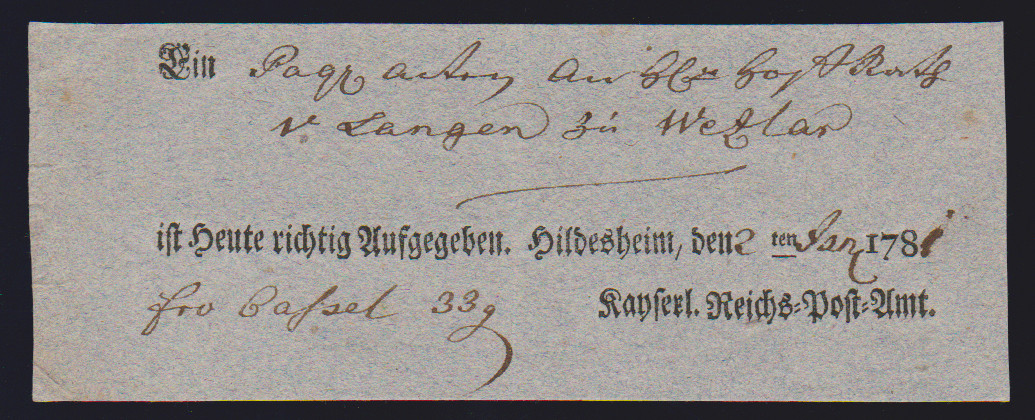 Ein Paqt acten An HEn Hoff Rath
v Langen zu Wetzlar
ist Heute richtig Aufgegeben. Hildesheim, den 2 ten Jan 1781
fro Cassel 33g
Kayserl. Reichs-Post-Amt.